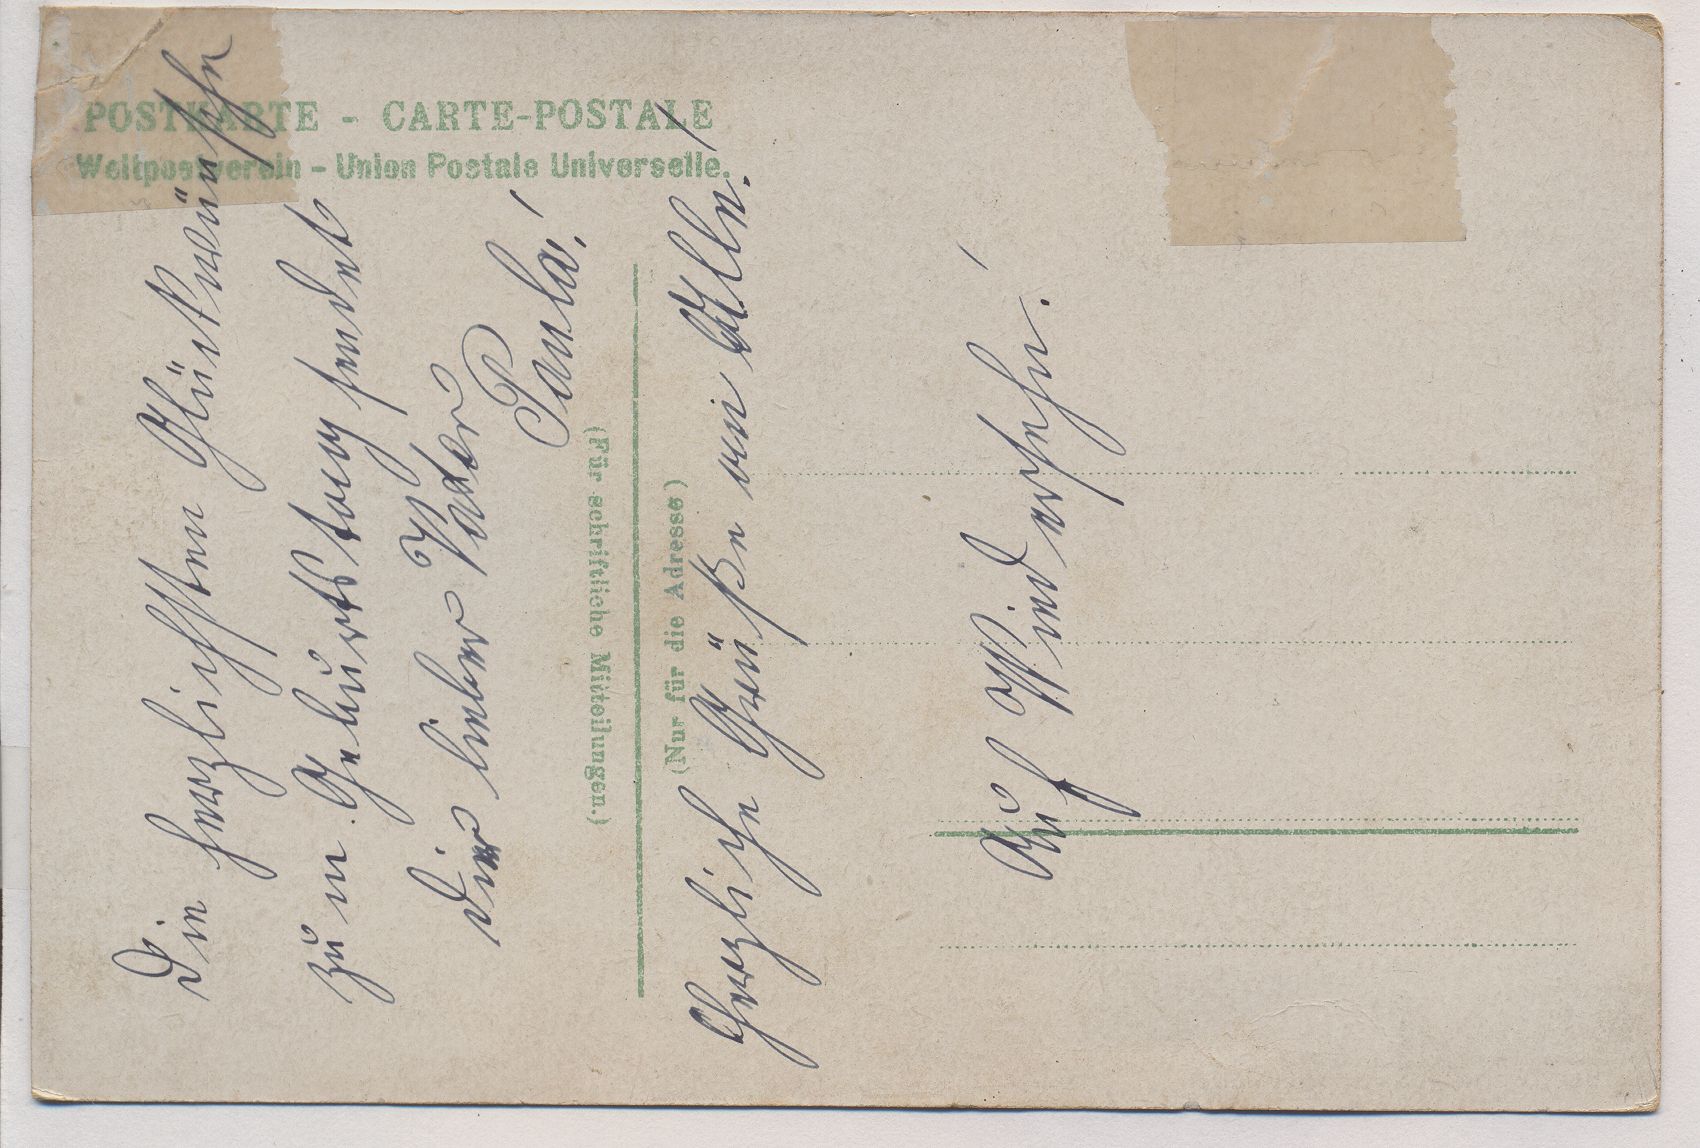 POSTKARTE - CARTE-POSTALE
Weltpostverein - Union Postale Universelle.
(Für schriftliche Mitteilungen.)
(Nur für die Adresse)
Die herzlichsten Glückwünsche
zum Geburtstag sendet
Dir lieber Vater
Paula!
Herzliche Grüße von Allen!
Auf Wiedersehen!